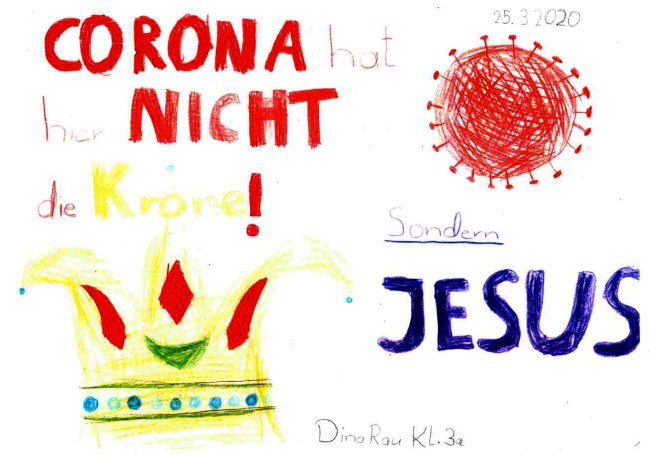 25.3 2020
CORONA hat
hier NICHT
die Krone!
Sondern
JESUS
Dina Rau Kl. 3a